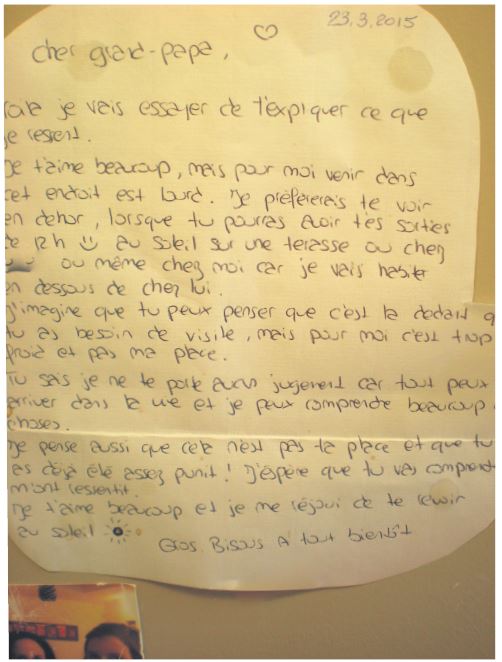 23.3.2015
cher grand-papa,
voila je vais essayer de t'expliquer ce que
je ressent.
Je t'aime beaucoup, mais pour moi venir dans
cet endroit est lourd. Je préfèrerais te voir
en dehor, lorsque tu pourras avoir tes sorties
de 12h au soleil sur une terasse ou chez
ou même chez moi car je vais habiter
en dessous de chez lui.
J'imagine que tu peux penser que c'est la dedant q
tu as besoin de visite, mais pour moi c'est trop
froid et pas ma place.
Tu sais je ne te porte aucun jugement car tout peux
arriver dans la vie et je peux comprendre beaucoup
choses.
Je pense aussi que cela n'est pas ta place et que tu
as déjà été assez punit! J'éspère que tu vas comprendr
mont ressentit.
Je t'aime beaucoup et je me réjoui de te revoir
au soleil
Gros Bisous A tout bientôt